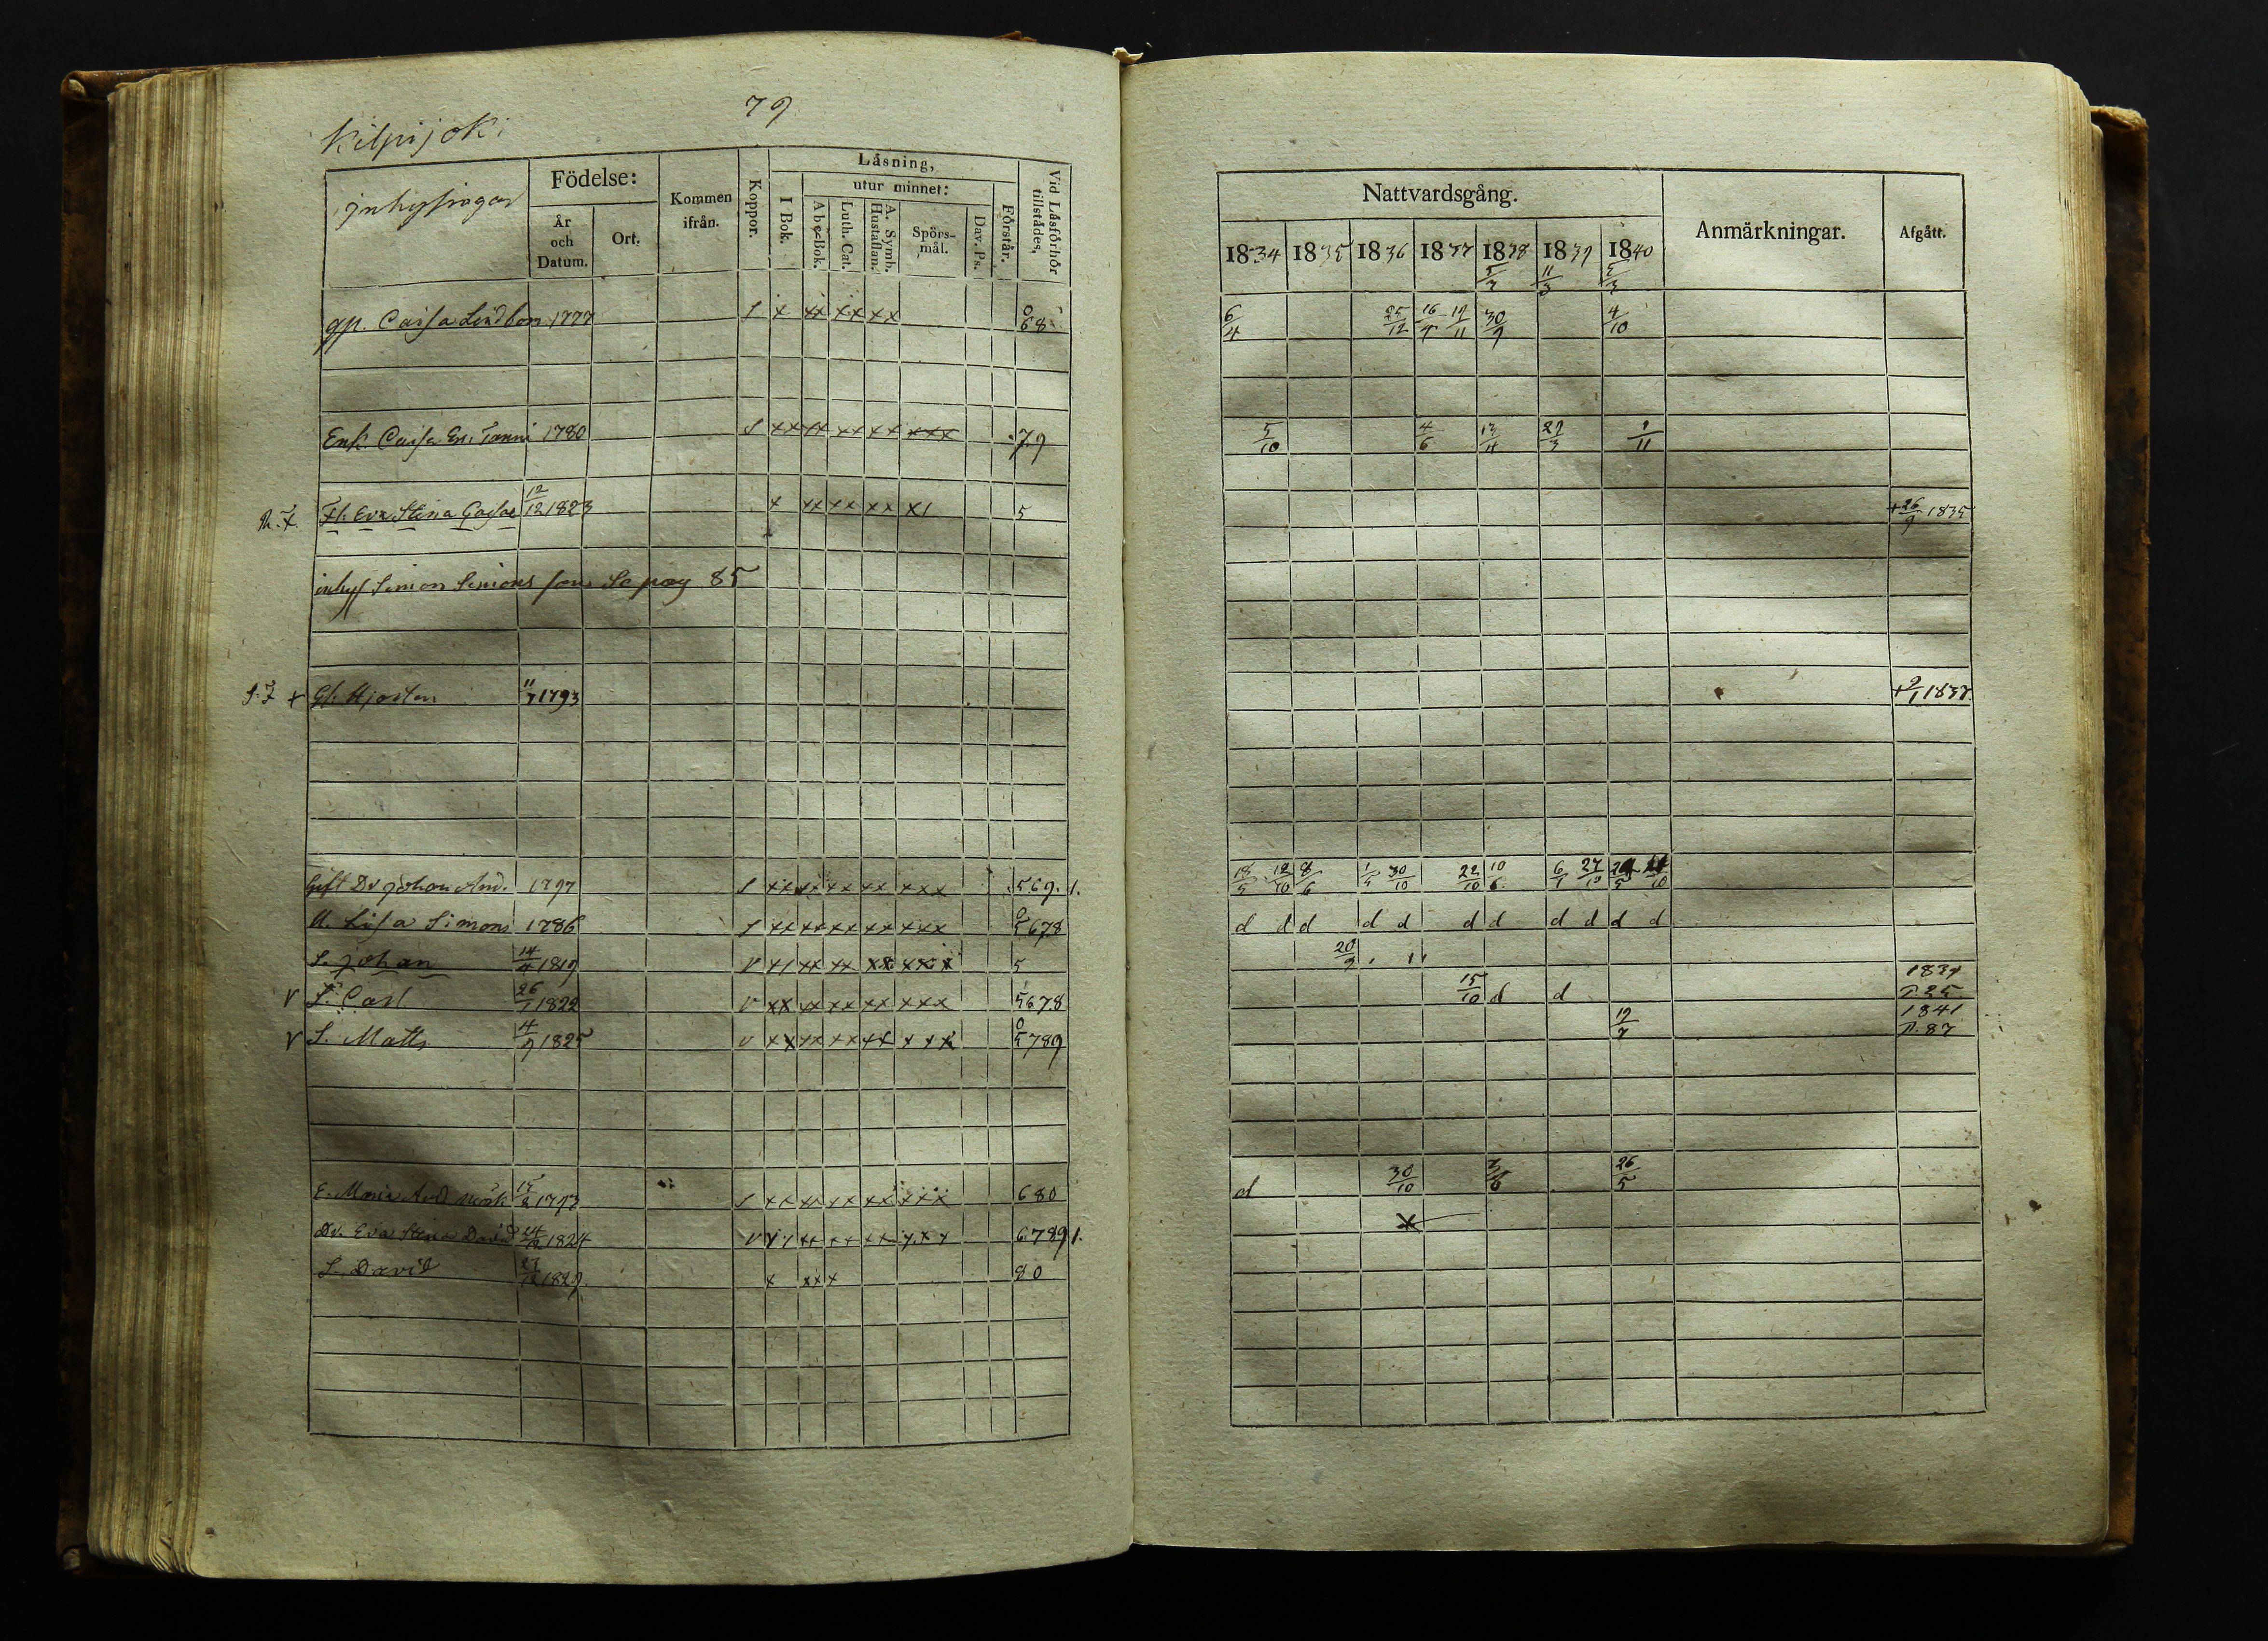 79
Kilpijoki
Inhysingar
Födelse:
År och Datum.
Ort.
Kommen ifrån.
Koppor.
Läsning,
I Bok.
utur minnet:
Abc-Bok.
Luth. Cat.
A. Symb. Hustaflan.
Spörs-mål.
Dav. Ps.
Förstår.
Vid Läsförhör tillstädes.
gp. Caisa Lindbom 1777 s x xx xx xx 0 68
Enk. Caisa Er. Tanni 1780 s xx xx xx xx xxx 7.9
Fl. Eva Stina 12/12 1823 x xx xx xx x1 5
inhys Simon Simons son Se pag 85
Gl. Hjorten 11/7 1793
Gift Dr Johan And. 1797 s xx xx xx xx xxx 569.1.
U. Lisa Simons 1786 s xx xx xx xx xxx 0 5678
S. Johan 14/4 1819 v x1 xx xx xx xxx 5
v S. Carl 26/1 1822 v xx xx xx xx xxx 5678
v S. Matts 4/9 1825 v xx xx xx xx xxx 0 5789
E. Maria And 1793 s xx xx xx xx xxx 680
Dr. Eva Stina David 24/12 1824 v xx xx xx xxx 6.7891.
S. David 1829 x xx x 80
Nattvardsgång.
Anmärkningar.
Afgått.
1834 1835 1836 1837 1838 1839 1840
5/3 11/3 5/3
6/4 25/12 16/4 19/11 30/9 4/10
5/10 4/6 13/4 29/3 1/11
+ 26/9 1835
+ 9/1 1837.
18/5 12/10 8/6 1/5 30/10 22/10 10/6 6/1 27/10 24/5 /10
d d d d d d d d d d d
20/9 , 11
15/10 d d 1839 p. 25
19/7 1841 p. 87
d 30/10 3/6 26/5
x